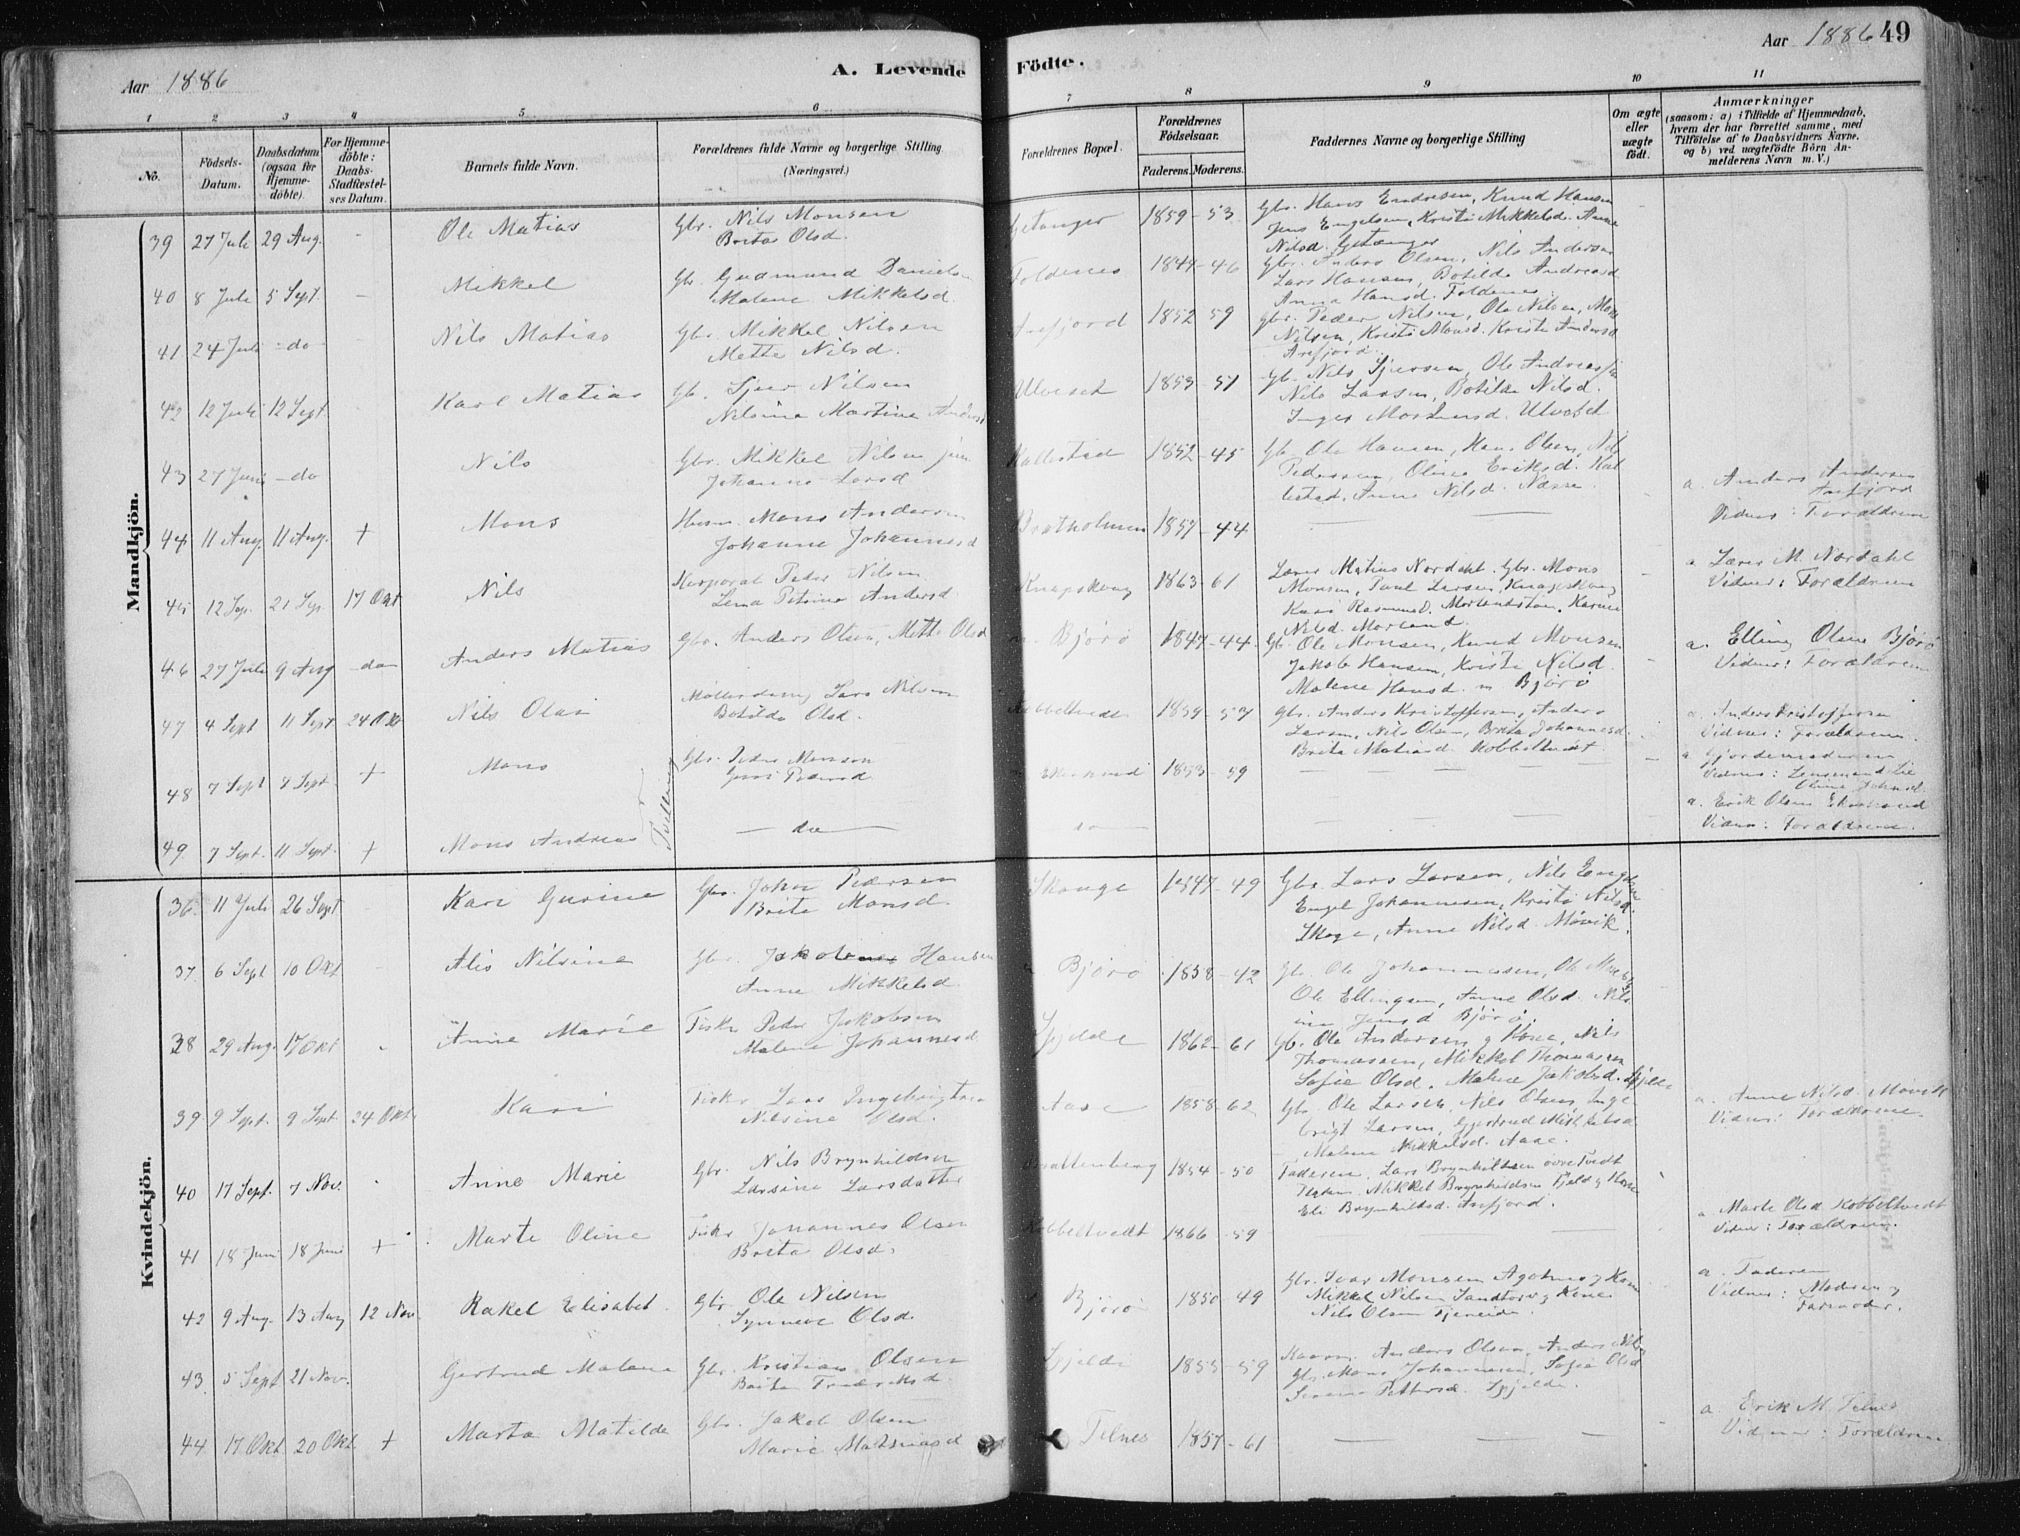 Aar 1886
A. Levende
Födte.
Aar 1886
49
1 2 3 4 5 6 7 8 9 10 11
No.
Födsels-Datum.
Daabsdatum (ogsaa for Hjemme-döbte).
For Hjemme-döbte: Daabs-Stadfæstel-ses Datum.
Barnets fulde Navn.
Forældrenes fulde Navne og borgerlige Stilling (Næringsvei.)
Forældrenes Bopæl.
Forældrenes Födselsaar.
Faderens. Moderens.
Faddernes Navne og borgerlige Stilling
Om ægte eller uægte födt.
Anmærkninger
(saasom: a) i Tilfælde af Hjemmedaab, hvem der har forrettet samme, med Tilföielse af to Daabsvidners Navne, og b) ved uægtefödte Börn An-melderens Navn m. V.)
Mandkjön.
39 27 Juli 29 Aug. - Ole Matias Gbr. Nils Monsen
Brita Olsd. 1859-53 Gbr. Hans Endresen, Knud Hansen
Jens Engelsen, Kristi Mikkelsd. Anne
Nilsd.
40 8 Juli 5 Sept. - Mikkel Gbr. Gudmund Daniels
Malene Mikkelsd. Foldenes 1844-46 Gbr. Anders Olsen, Nils Andersen
Lars Hansen, Botilde Andreasd
Anna Hansd. Foldenes
41 24 Juli -do- Nils Matias Gbr. Mikkel Nilsen
Mette Nilsd. Arefjord 1852 59 Gbr. Peder Nilsen, Ole Nilsen, Mons
Nilsen, Kristi Monsd. Kristi Andersd
Arefjord.
42 12 Juli 12 Sept. Karl Matias Gb. Sjur Nilsen
Nilsine Martine Andersd Ulveset 1853-57 Gb. Nils Sjursen, Ole Andreassen
Nils Larsen, Botilde Nilsd.
Inger
43 27 Juni -do Nils Gbr. Mikkel Nilsen jun
Johanne Larsd Kallestad 1852-45 Gb. Ole Hansen, Hans Olsen, Nils
Pedersen, Oline Eriksd. Kal
lestad, Anne Nilsd.
44 11 Aug. 11 Aug. + Mons Husm. Mons Andersen
Johanne Johannesd Bratholmen 1857-44 a. Anders Andersen
Arefjord
Vidner: Forældrene
45 12 Sep. 21 Sep. 17 Okt Nils Korporal Peder Nilsen
Lena Petrine Andersd. Knapskoug 1863-61 Lærer Matias Nordahl. Gbr. Mons
Monsen, Paul Larsen, Knapskoug
Kari Rasmusd. Karine
Nilsd. Morland. a Lærer M Nordahl
Vidner: Forældrene
46 27 Juli 9 Aug -do- Anders Matias Gbr. Anders Olsen, Mette Olsd Bjørø 1847-44 Gb. Ole Monsen, Knud Monsen
Jakob Hansen, Kristi Nilsd.
Malene Hansd. Bjørø a. Elling Olsen Bjørø
Vidner: Forældrene
47 4 Sept 11 Sept 24 Okt Nils Olai Lars Nilsen
Botilda Olsd. Kobbeltvedt 1859-57 Gbr. Anders Kristoffersen, Anders
Larsen, Nils Olsen, Brita Johannesd.
Brita Matiasd Kobbeltvedt. a. Anders Kristoffersen
Vidner: Forældrene
48 7 Sept 7 Sept. + Mons Tvillinger Gbr. Peder Monsen
Guri Pedersd 1853-59 a Gjordemoderen
Vidner: Lensmand Lie
Oline Johnsd.
49 7 Sept. 11 Sept. + Mons Andreas - do - do a. Erik Olsen
Vidner: Forældrene.
Kvindekjön.
36 11 Juli 26 Sept Kari Gurine Gbr. John Pedersen
Brite Monsd. Skauge 1847-49 Gbr. Lars Larsen, Nils Engelsen
Engel Johannesen, Kristi Nilsd.
Skoge, Anne Nilsd. Møvik.
37 6 Sept 10 Okt. Alis Nilsine Gbr. Hansen
Anne Mikkelsd. Bjørø 1858-42 Gb. Ole Johannessen, Ole
Ole Ellingsen, Anne Olsd. Nils
ine Jensd Bjørø.
38 29 Aug. 17 Okt Anne Marie Fisker Peder Jakobsen
Malene Johannesd Spjelde 1862-61 Gb. Ole Andersen og Kone, Nils
Thomassen, Mikkel Thomassen
Sofie Olsd. Malene Jakobsd. Spjelde
39 9 Sept. 9 Sept 24 Okt. Kari Fisker Lars Ingebrigtsen
Nilsine Olsd. Aase 1858-62 Gbr. Ole Larsen, Nils Olsen, Inge
brigt Larsen, Gjertrud Mikkelsd
Malene Mikkelsd. Aase. a. Anne Nilsd. Møvik
Vidner: Forældrene.
40 17 Sept. 7 Nov. Anne Marie Gbr. Nils Brynhildsen
Larsine Larsdatter 1854-50 Faderen, Lars Brynhildsen
Mikkel Brynhildsen Fjeld og Kone
Eli Brynhildsd. Arefjord.
41 18 Juni 18 Juni + Marte Oline Fisker Johannes Olsen
Brita Olsd. Kobbeltvedt 1866-59 a Marte Olsd Kobbeltvedt
Vidner: Forældrene.
42 9 Aug. 13 Aug 12 Nov. Rakel Elisabet Gbr. Ole Nilsen
Synneve Olsd. Bjørø 1850-49 Gbr. Ivar Monsen Agotnes og Kone
Mikkel Nilsen Landtorv og Kone
Nils Olsen Tjeneide. a. Faderen
Vidner: Moderen og
Farmoder.
43 5 Sept 21 Nov. Gertrud Malene Gbr. Kristian Olsen
Brita Frederiksd. Spjelde 1855-59 Anders Olsen, Anders
Gbr. Mons Johannesen, Sofie Olsd
Pettersd. Spjelde.
44 17 Okt. 20 Okt. + Marta Matilde Gbr. Jakob Olsen
Marie Matsiasd Telnes 1857-61 a. Erik M. Telnes
Vidner: Forældrene